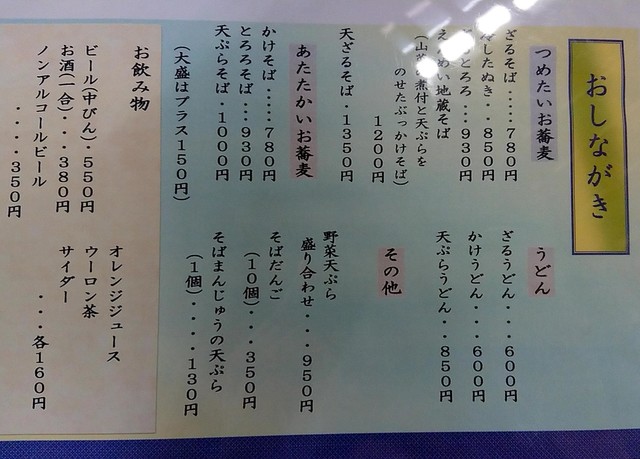 おしながき
つめたいお蕎麦
ざるそば・・・・・780円
冷したぬき・・850円
とろろ・・・930円
えんめい地蔵そば
(山菜の煮付と天ぷらを
のせたぶっかけそば)
1200円
天ざるそば・1350円
あたたかいお蕎麦
かけそば・・・・・780円
とろろそば・・・930円
天ぷらそば・1000円
(大盛はプラス150円)
うどん
ざるうどん・・・600円
かけうどん・・・600円
天ぷらうどん・・850円
その他
野菜天ぷら
盛り合わせ・・・950円
そばだんご
(10個)・・・350円
そばまんじゅうの天ぷら
(1個)・・・・130円
お飲み物
ビール(中びん)・550円
お酒(一合)・・・380円
ノンアルコールビール
・・・・350円
オレンジジュース
ウーロン茶
サイダー
・・・各160円